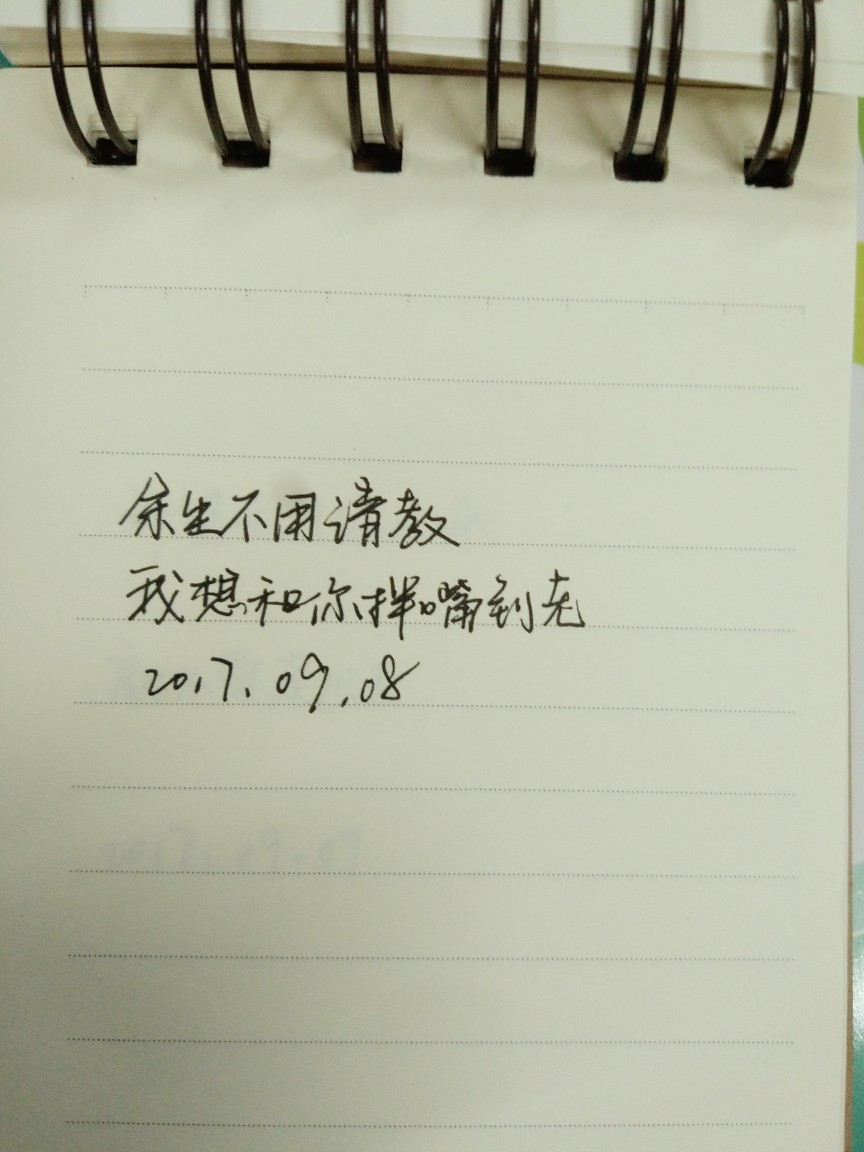 余生不用请教
我想和你拌嘴到老
2017.09.08